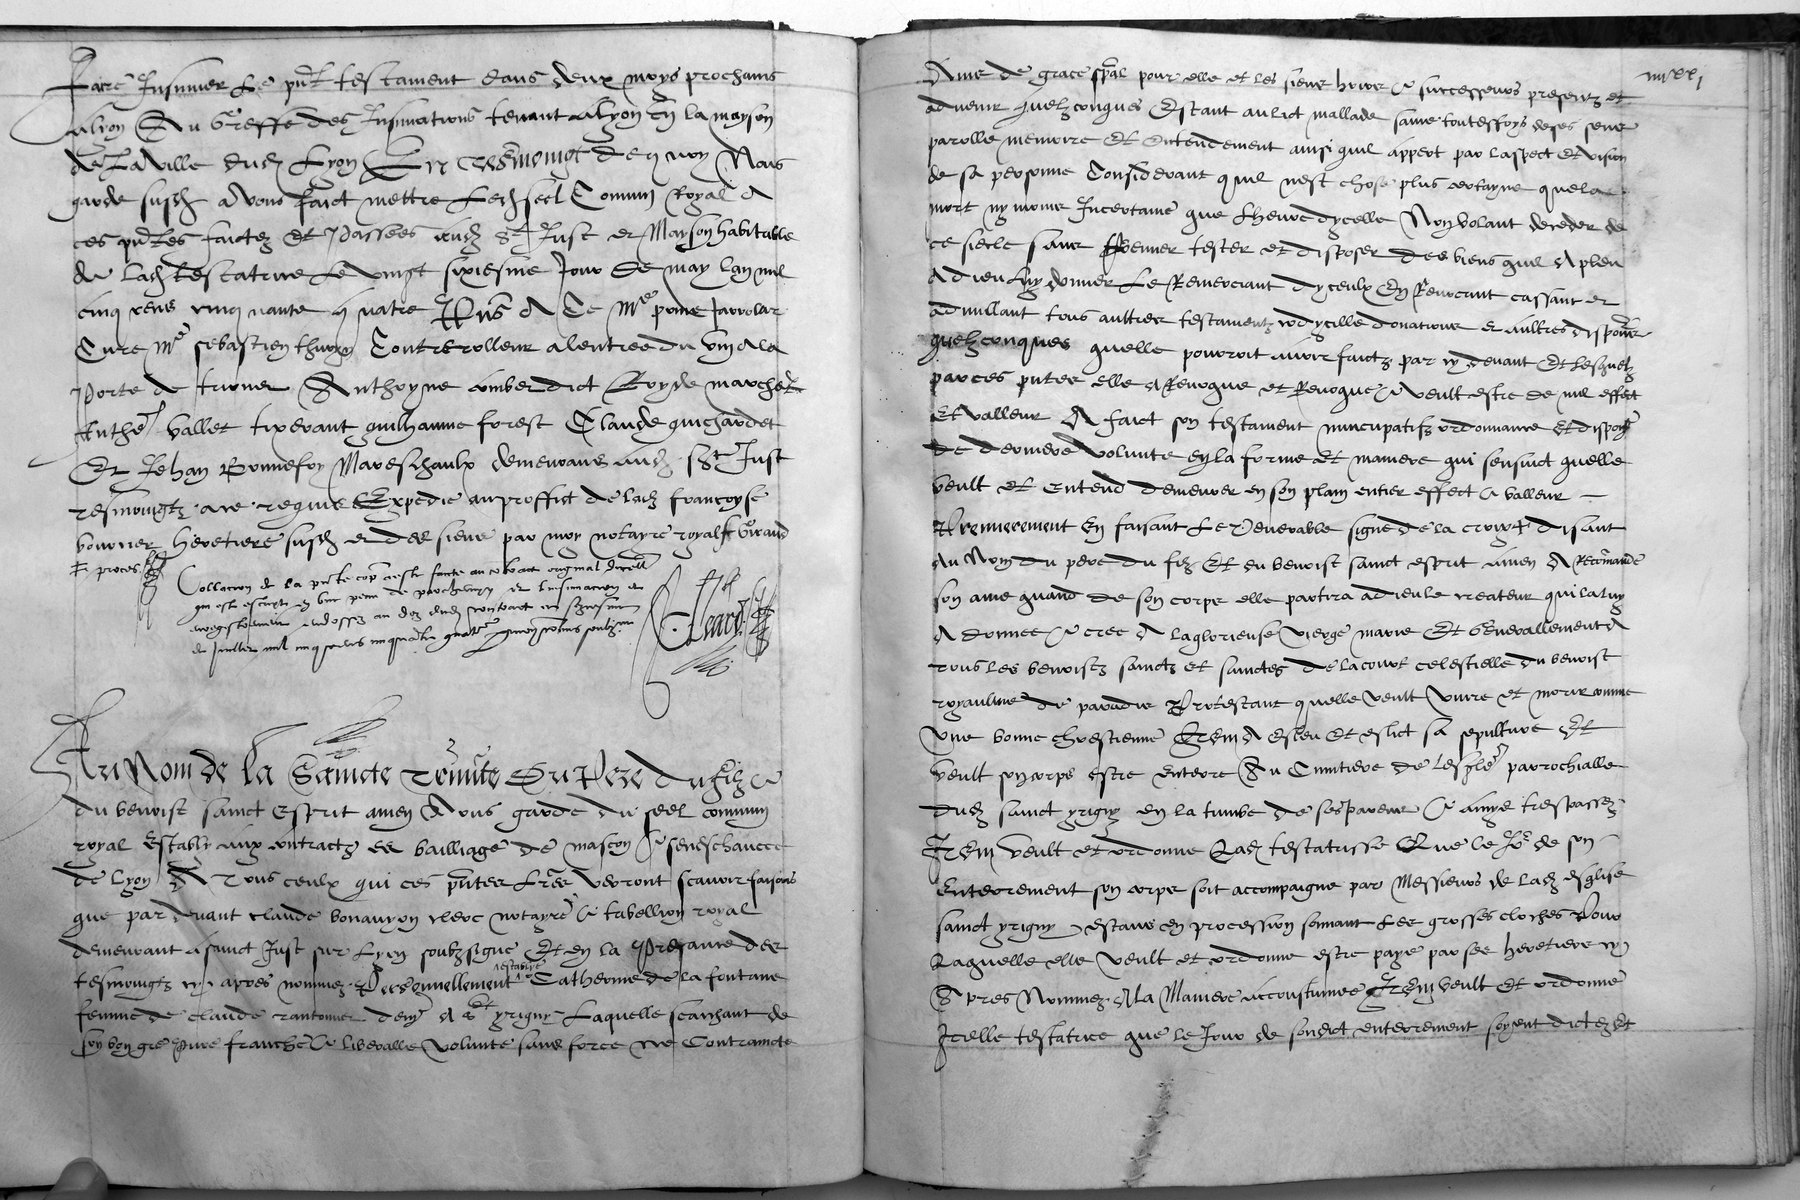 Faire Insinuer Le pnt testament dans deux moys prochains
a lyon Au Greffe des Insinuations tenant a lyon En la mayson
de La Ville dud Lyon En tesmoingt de quoy Nous
garde susd avons faict mettre Led seel Comun Royal A
ces pntes faictes Et Passees aud St Just et Mayson habitable
de lad testatrice Le vingt sixiesme Jour de may lan mil
cinq cens cinquante quatre Pns A Ce Mre pierre
Cure Mre sebastien Contrerolleur a lentree du vin a la
Porte de Anthoyne dict Roy de marchet
Anthe vallet tixerant guilhaume forest Claude guichardet
Et Jehan Bonnefoy Mareschaulx demeurans aud St Just
tesmoingtz ace requis Expedie au proffict de lad francoyse
heretiere susd et des siens par moy notayre royal Giraud
proces
Collacion de la pnte copie a este faicte au vray original dicelle
qui est escript en une peau de parchemyn et linsinuacion et
enregistrement endossez au doz dud contract
de Juillet mil cinq cens cinquante quatre
Cleard
Au Nom de la Saincte Trinite Du Pere du filz &
du benoist sainct Esprit amen A vous garde du seel commun
royal estably aux contractz es bailliage de mascon & seneschaucee
de lyon A Tous ceulx qui ces pntes Lres verront scavoir faisons
que par devant claude bonauyon clerc notayre & tabellion royal
demeurant a sainct Just sur Lyon soubzsigne Et en la Presance des
tesmoingtz cy apres nommez Personnellement establye Catherine de la fontane
femme de claude demt a St yrigny Laquelle scaichant de
son bon gre pure franche & liberalle volunte sans force ne Contraincte
iiii xx i
Ame de grace spal pour elle et les siens hoirs & successeurs presentz et
advenir quelzconques Estant au lict mallade saine touteffoys de ses sens
parolle memoire Et Entendement ainsi quil appert par laspect Et vision
de sa personne Considerant quil nest chose plus certayne que la
mort ny moins Incertaine que Lheure dycelle Non volant deceder de
ce siecle sans tester et disposer des biens quil A pleu
A dieu luy donner Le Remerciant dyceulx En Revocant cassant et
adnullant tous aultres testamentz codycille donations et aultres dispoons
quelzconques quelle pourroit avoir faictz par cy devant Et Lesquelz
par ces pntes elle A Revoque et Revoque & veult estre de nul effect
Et valleur A faict son testament nuncupatifz ordonnance Et dispoon
de derniere volunte en la forme Et maniere qui sensuict quelle
veult Et Entend demeurer en son plain entier effect & valleur
Premierement En faisant Le Venerable signe de la croix + disant
Au Nom du pere du filz Et du benoist sainct esprit amen A Recomande
son ame quand de son corps elle partira a dieu le createur qui la luy
A donnee & cree A la glorieuse vierge marie Et Generallement A
tous les benoistz sainctz et sainctes de la court celestielle du benoist
royaulme de paradis Protestant quelle veult vivre et morir comme
Une bonne chrestienne Item A Esleu Et eslict sa sepulture Et
veult son corps estre enterre Au Cimitiere de Lesglise parrochialle
dud sainct yrigny en la tumbe de ses parens & amys trespassez
Item veult et ordonne Lad testatrisse Que le Jor de son
Enterrement son corps soit accompaigne par Messieurs de lad esglise
sainct yrigny estans en procession sonnant Les grosses cloches Pour
Laquelle elle veult et ordonne estre paye par ses heretiers cy
Apres Nommez A La Maniere accoustumee Item veult Et ordonne
Icelle testatrice que le Jour de sondict enterrement soyent dictez Et